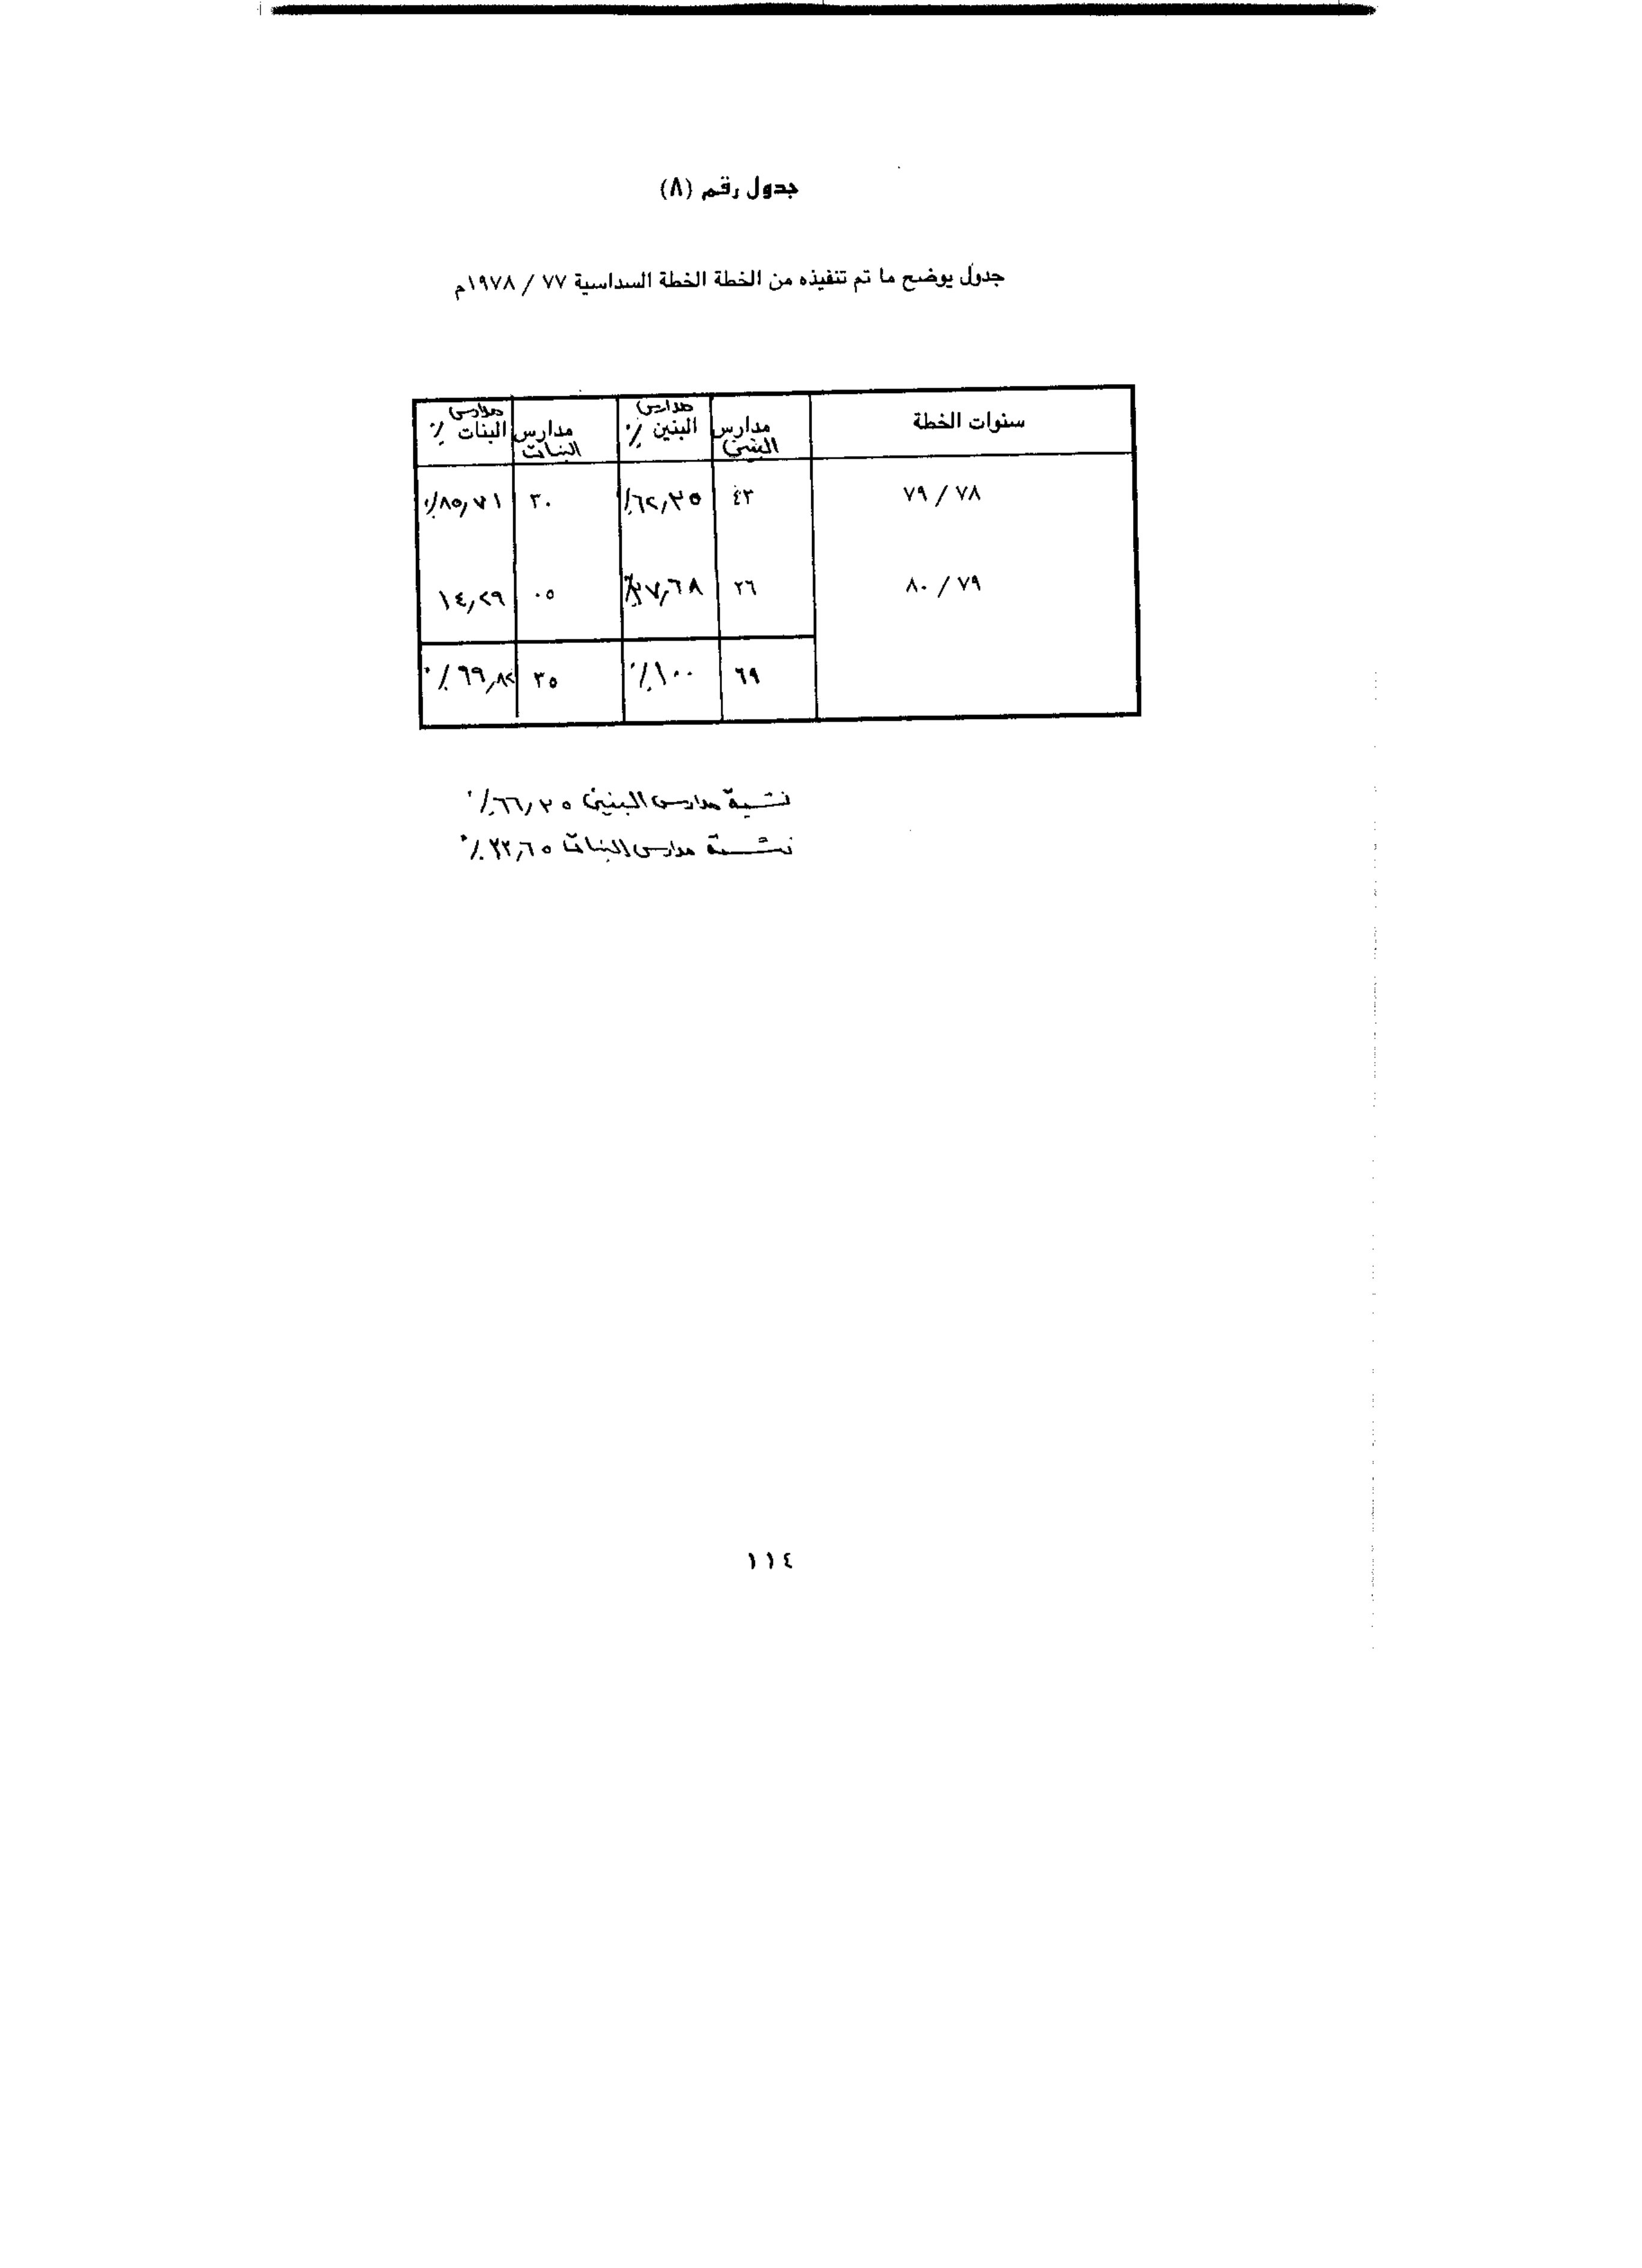 جدول رقم (٨)
جدول يوضح ما تم تنفيذه من الخطة الخطة السداسية ٧٧ / ١٩٧٨م
سنوات الخطة | مدارس البنين | مدارس البنين ٪ | مدارس البنات | مدارس البنات ٪
٧٩ / ٧٨ | ٤٣ | ٦٢,٣٥٪ | ٣٠ | ٨٥,٧١٪
٨٠ / ٧٩ | ٢٦ | ٣٧,٦٨٪ | ٠٥ | ١٤,٢٩
٦٩ | ١٠٠٪ | ٣٥ | ٦٩,٨٢٪
نسبة مدارس البنين ٦٦,٣٥٪
نسبة مدارس البنات ٣٣,٦٥٪
١١٤